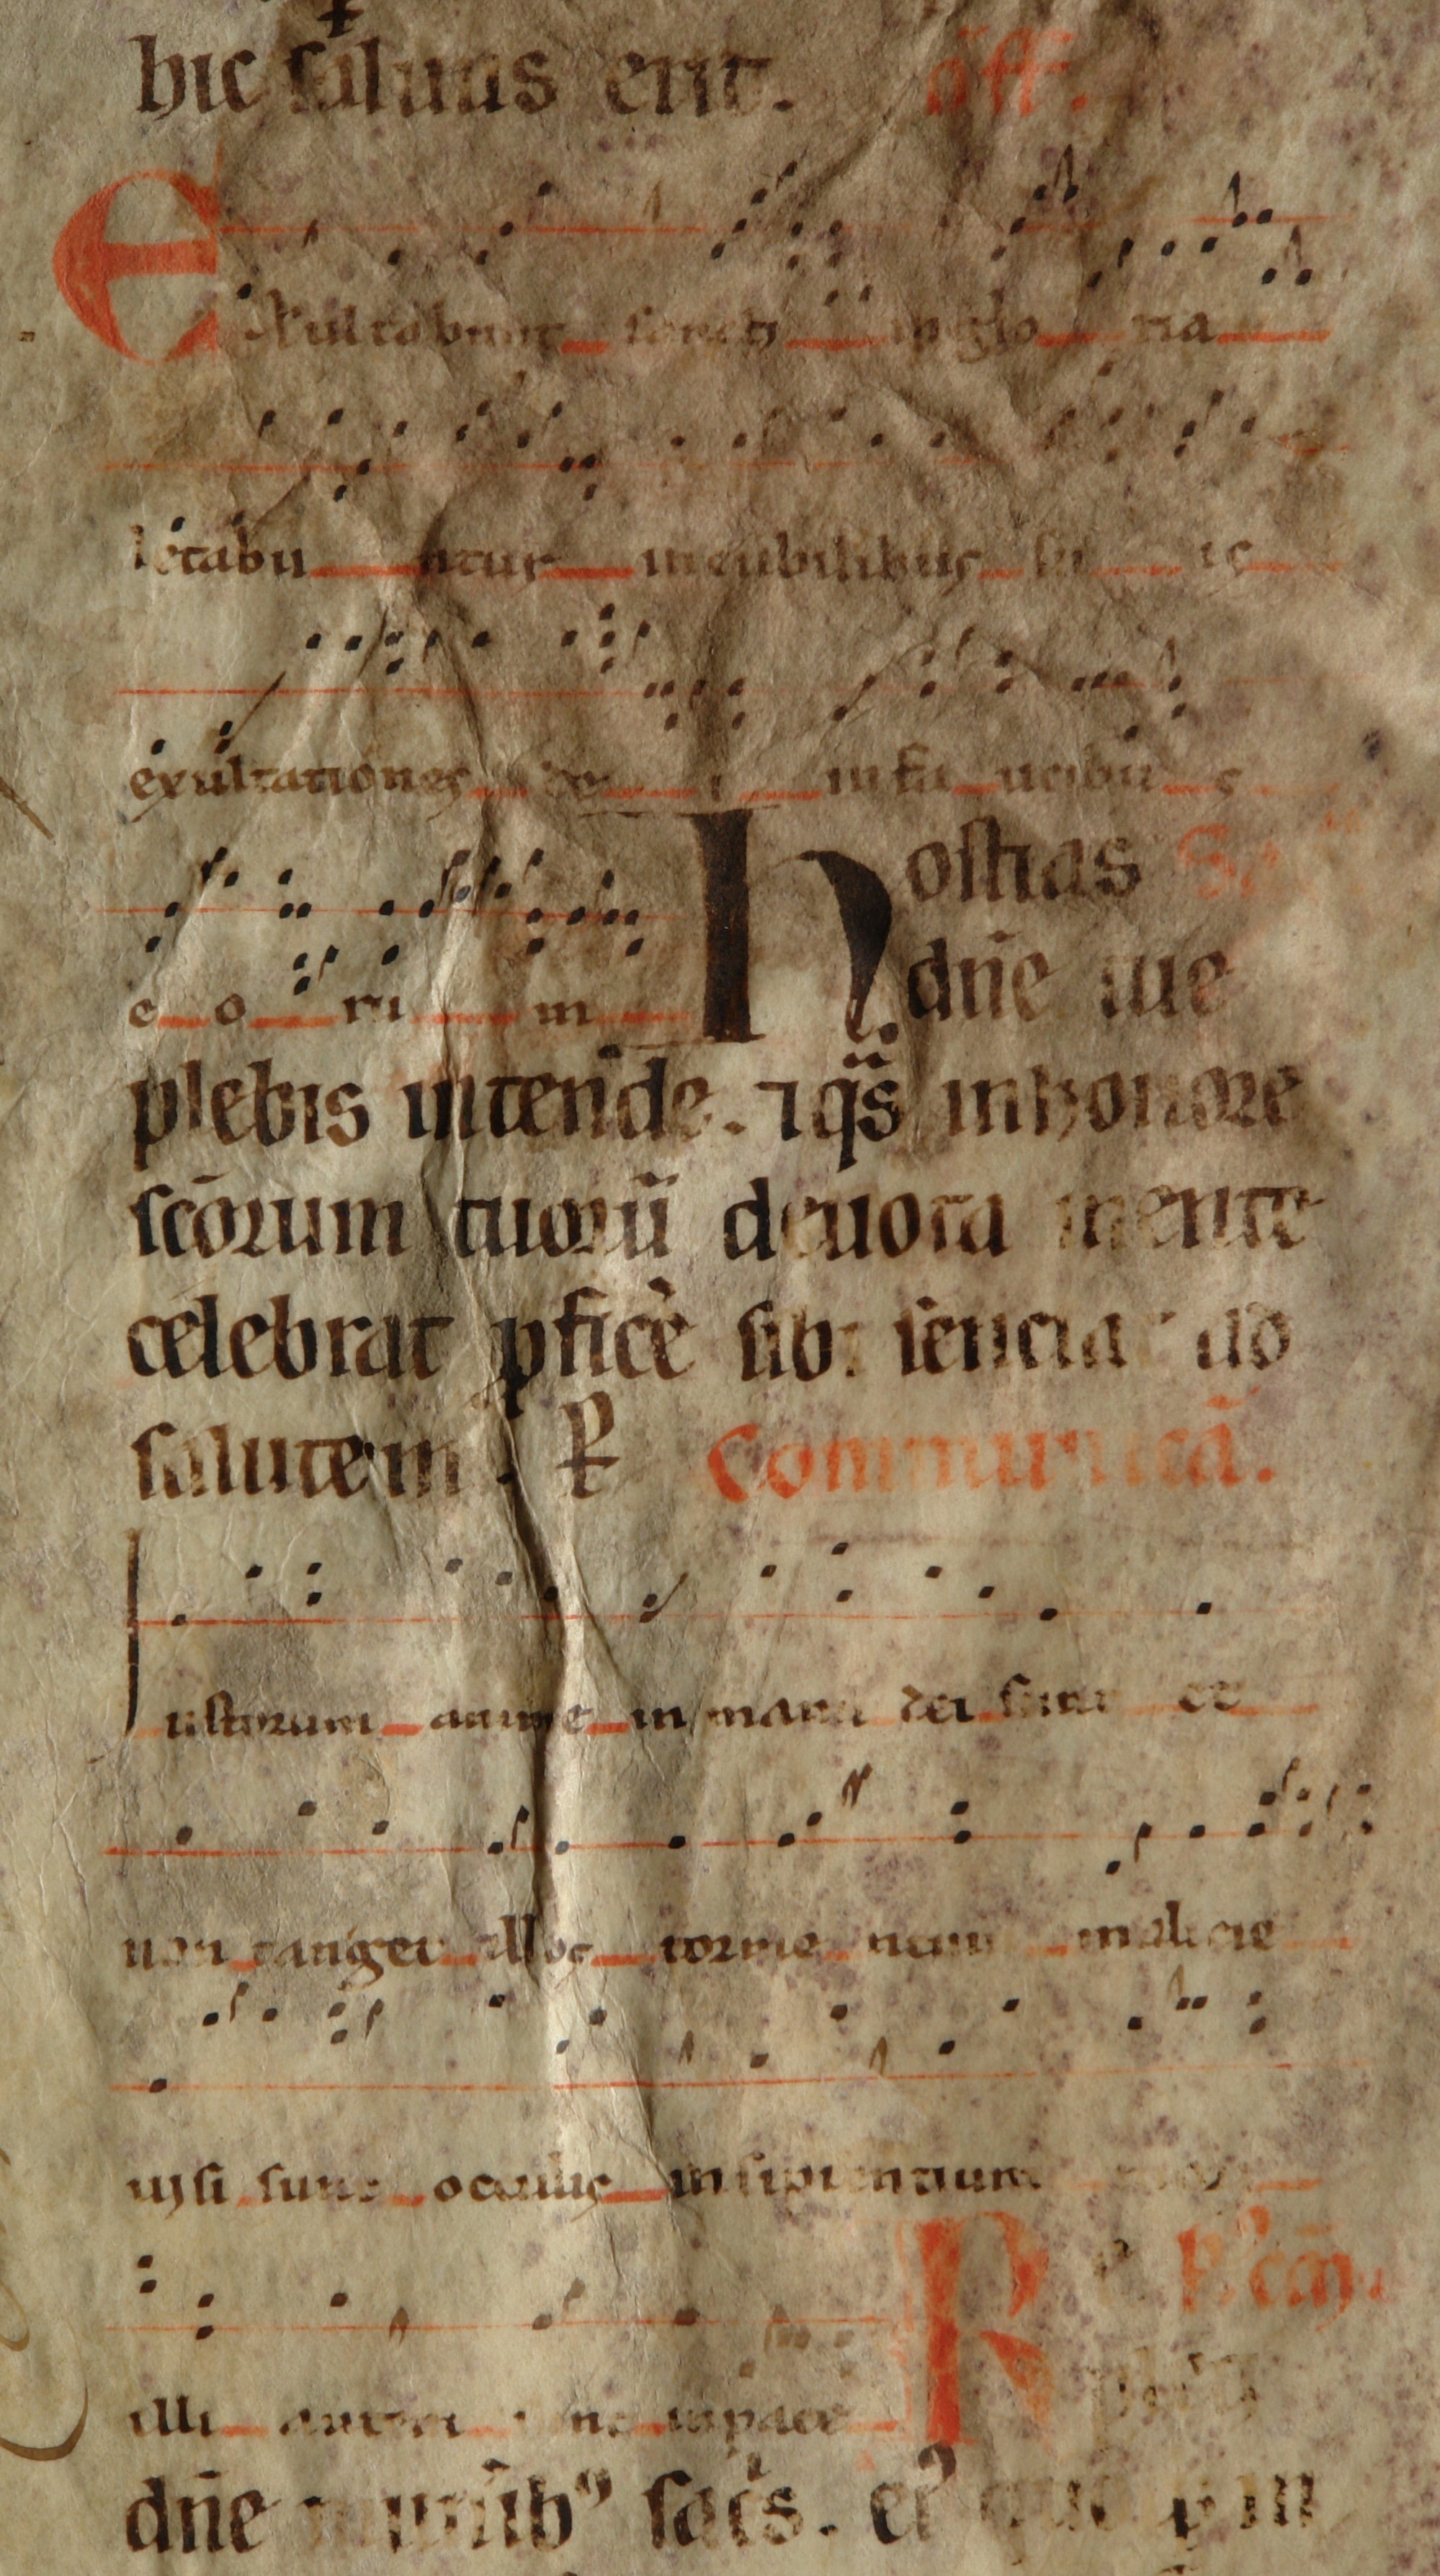 hic saluus erit. off.
Exultabunt sancti in glo ria
letabu ntur in cubilibus su is
exultationes de i in fa ucibu s
e o ru m
Hostias
dn̄e tue
plebis intende. ⁊ qs̄ in honore
scōrum tuorū deuota mente
celebrat ꝓficẻ sibi senciat ad
salutem. P Communicā.
Iustorum anime in manu dei sunt et
non tanget illos torme ntum malicie
uisi sunt oculis insipientium
illi autem sunt in pace R
dn̄e sac̄s. eiꝰ